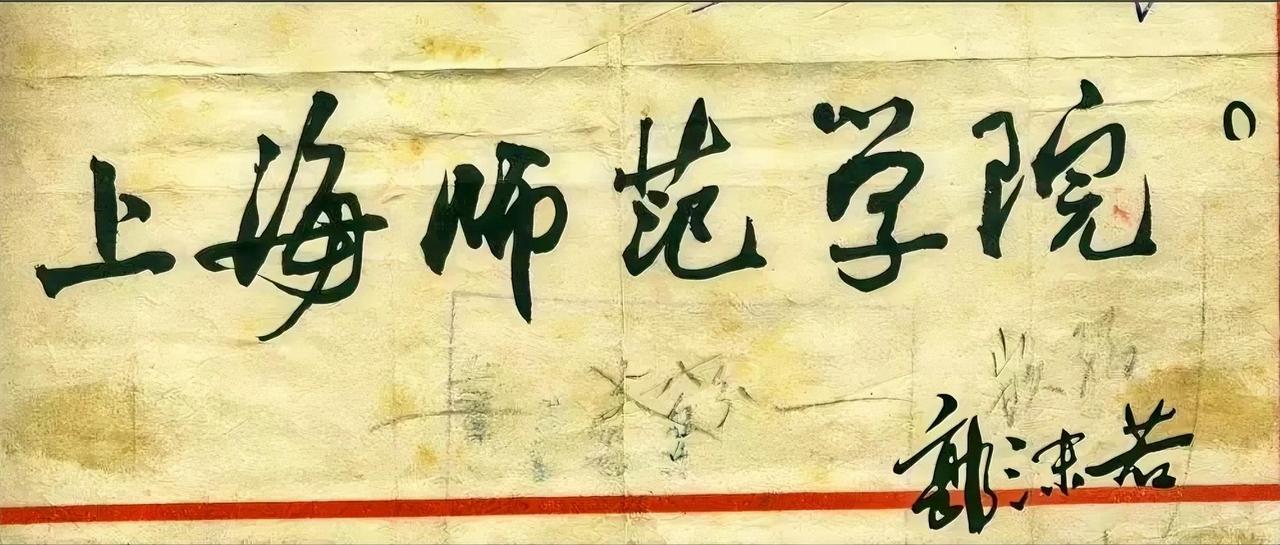 上海师范学院。
郭沫若